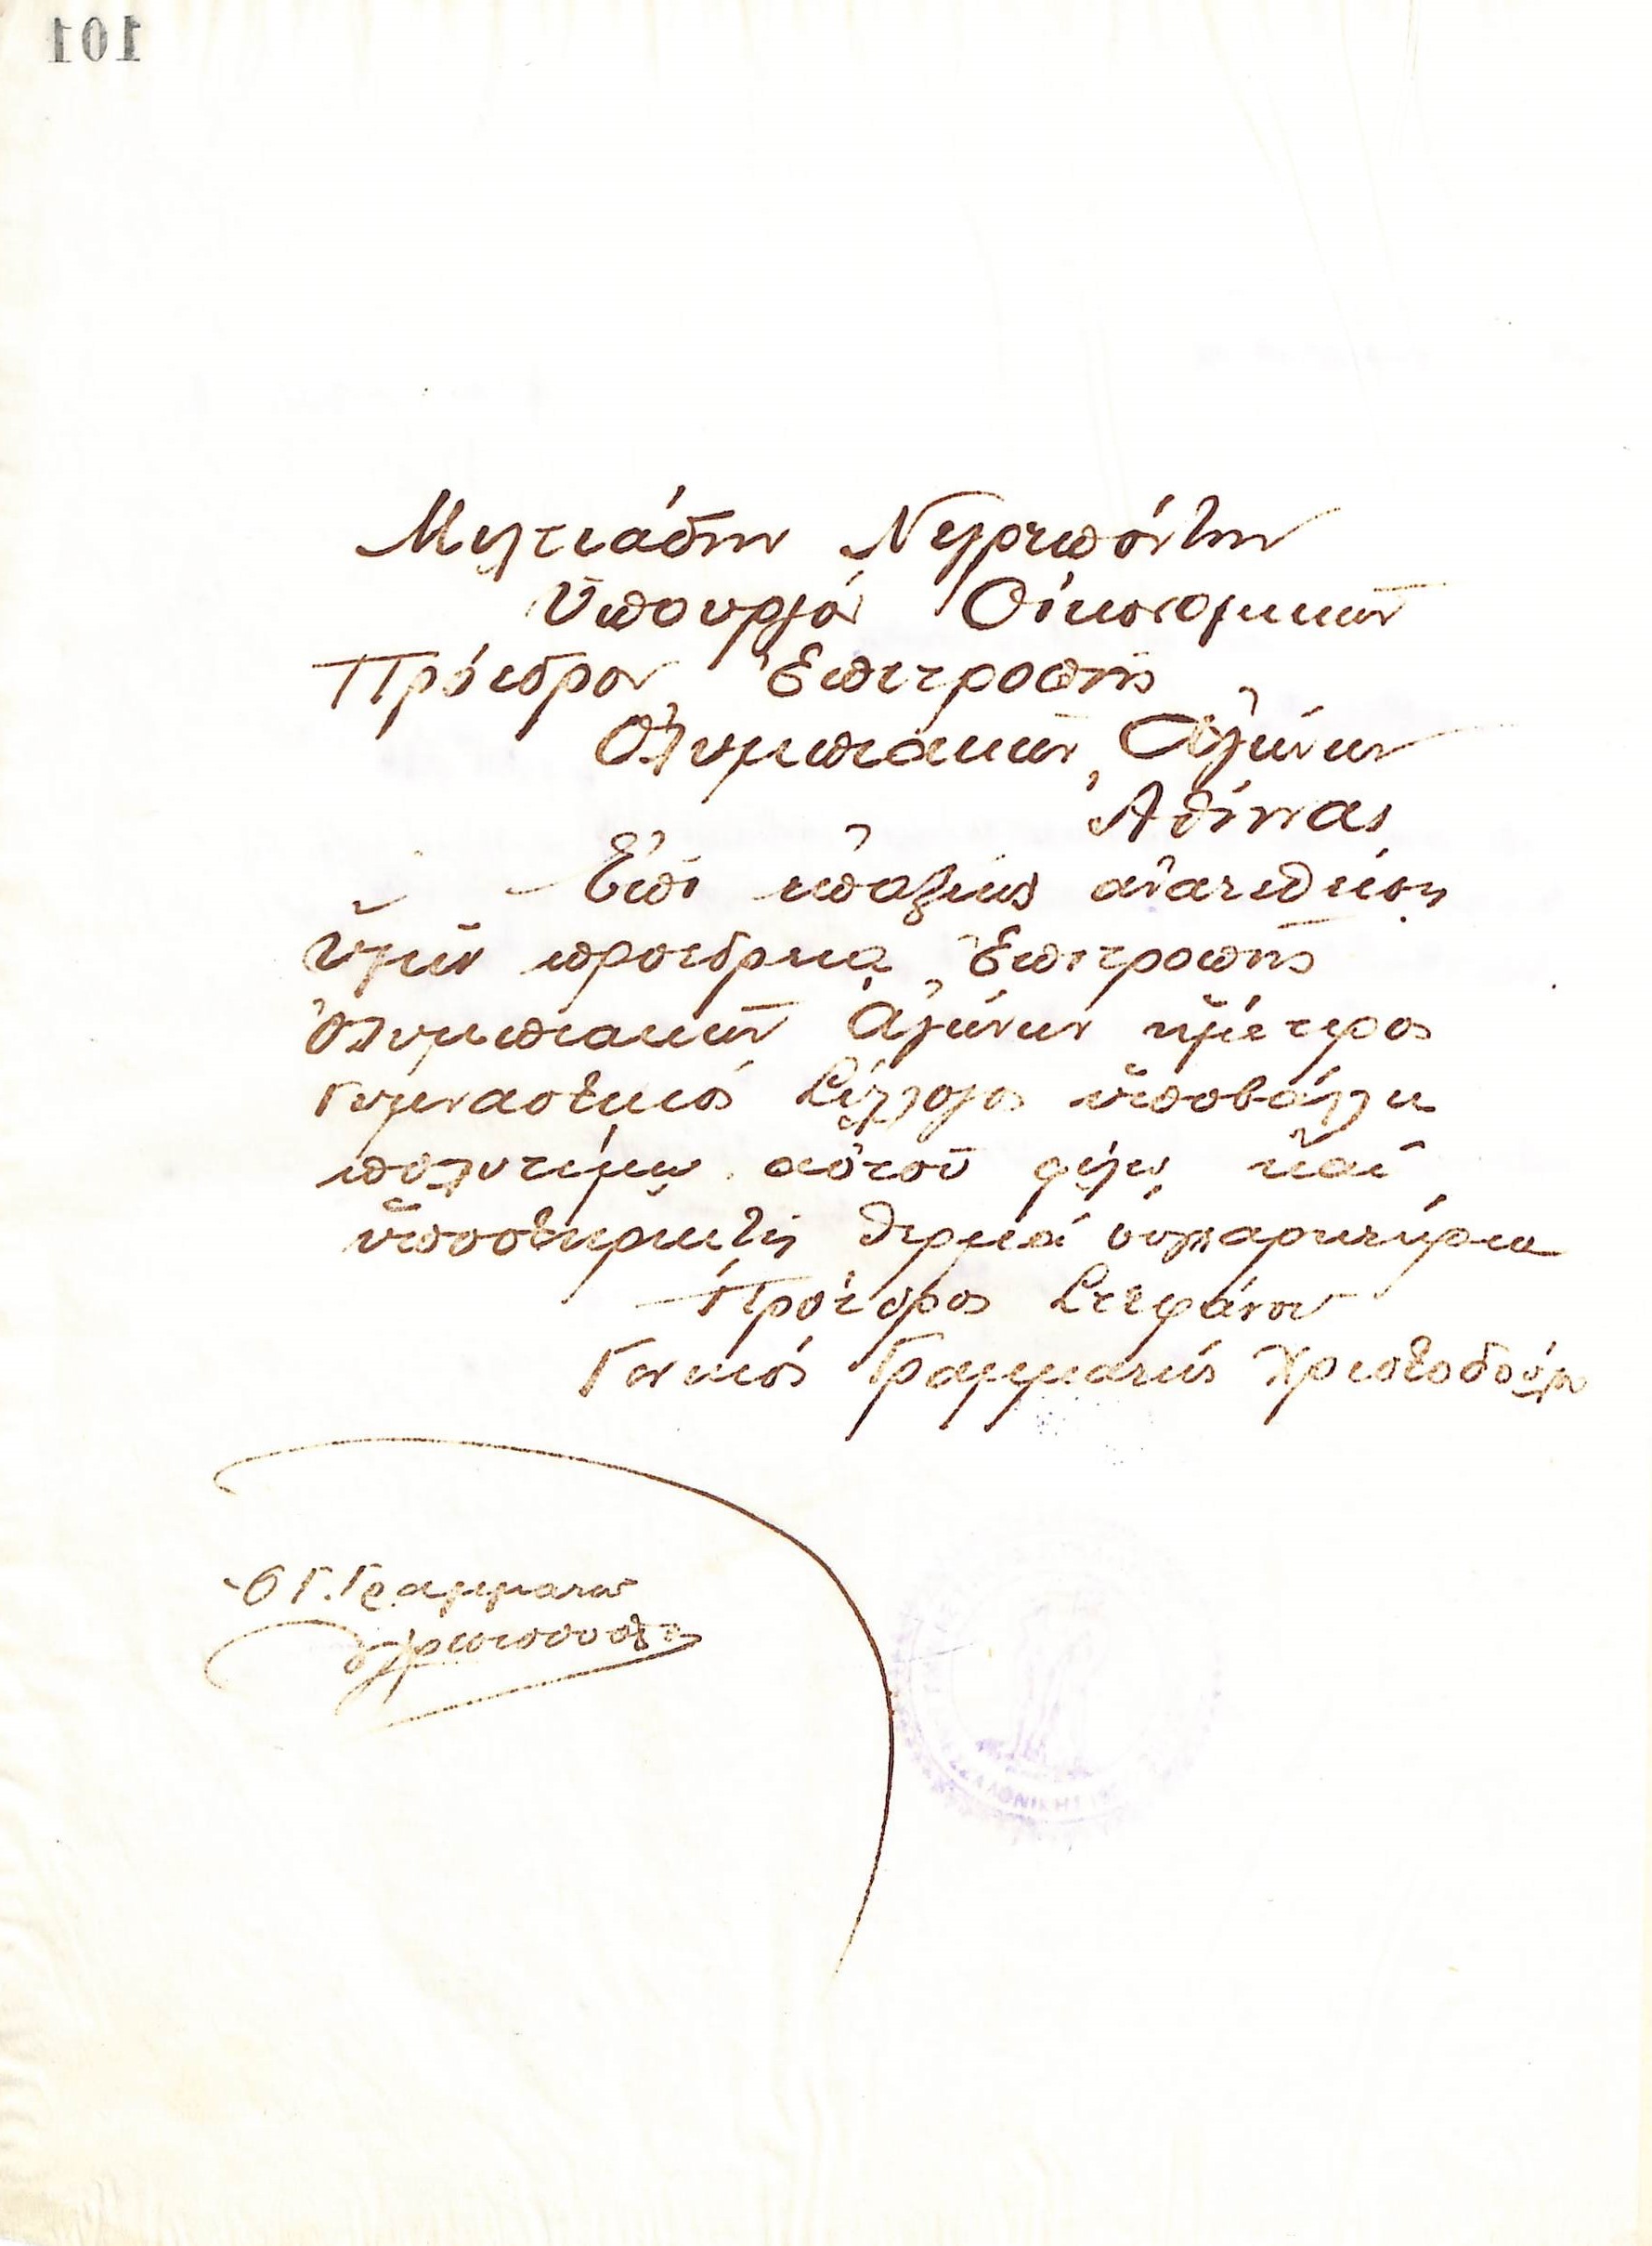 101
Μιλτιάδην Νεγρεπόντην
Ὑπουργόν Οἰκονομικῶν
Πρόεδρον Ἐπιτροπῆς
Ὀλυμπιακῶν Ἀγώνων
Ἀθήνας
Ἐπί ἐπαξίως ἀνατεθείσῃ
ὑμῖν προεδρείᾳ Ἐπιτροπῆς
Ὀλυμπιακῶν Ἀγώνων ἡμέτερος
Γυμναστικός Σύλλογος ὑποβάλλει
πολυτίμῳ αὐτοῦ φίλῳ καί
ὑποστηρικτῇ θερμά συγχαρητήρια
Πρόεδρος Στεφάνου
Γενικός Γραμματεύς Χριστοδούλου
Ὁ Γ. Γραμματεύς